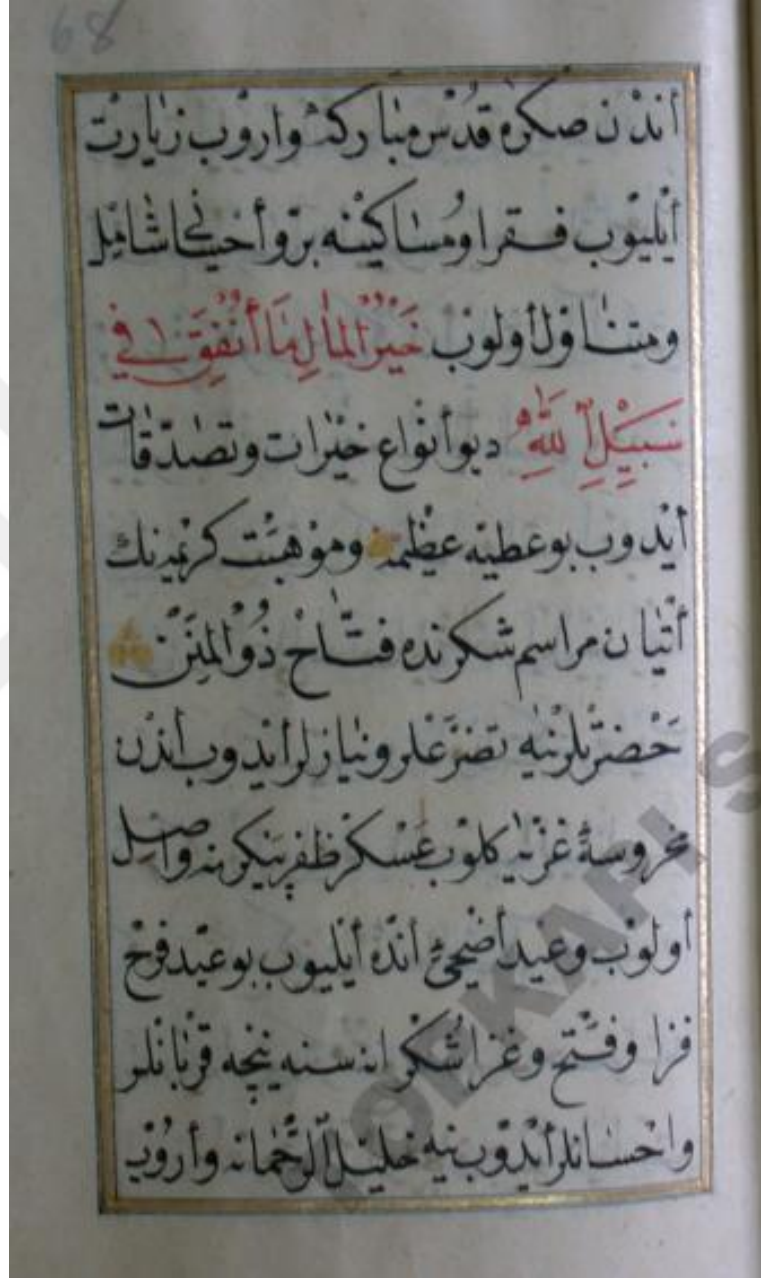 68
أندن صكره قدس مباركه واروب زيارت
أيليوب فقرا ومساكينه برو أحساني شامل
ومتناول أولوب خير المال ما أنفق في
سبيل الله ديو أنواع خيرات وتصدقات
أيدوب بو عطيه عظيمه وموهبت كريمه نك
أتيان مراسم شكرنده فتاح ذو المنن
حضرتلرينه تضرعلر ونيازلر أيدوب أندن
محروسۀ غزيه كلوب عسكر ظفر پيكرينه واصل
أولوب وعيد أضحيي أنده أيليوب بو عيد فرح
فزا وفتح وغزا شكرانه سنه نيچه قربانلر
واحسانلر أيدوب ينه خليل الرحمانه واروب
TOPKAPI S